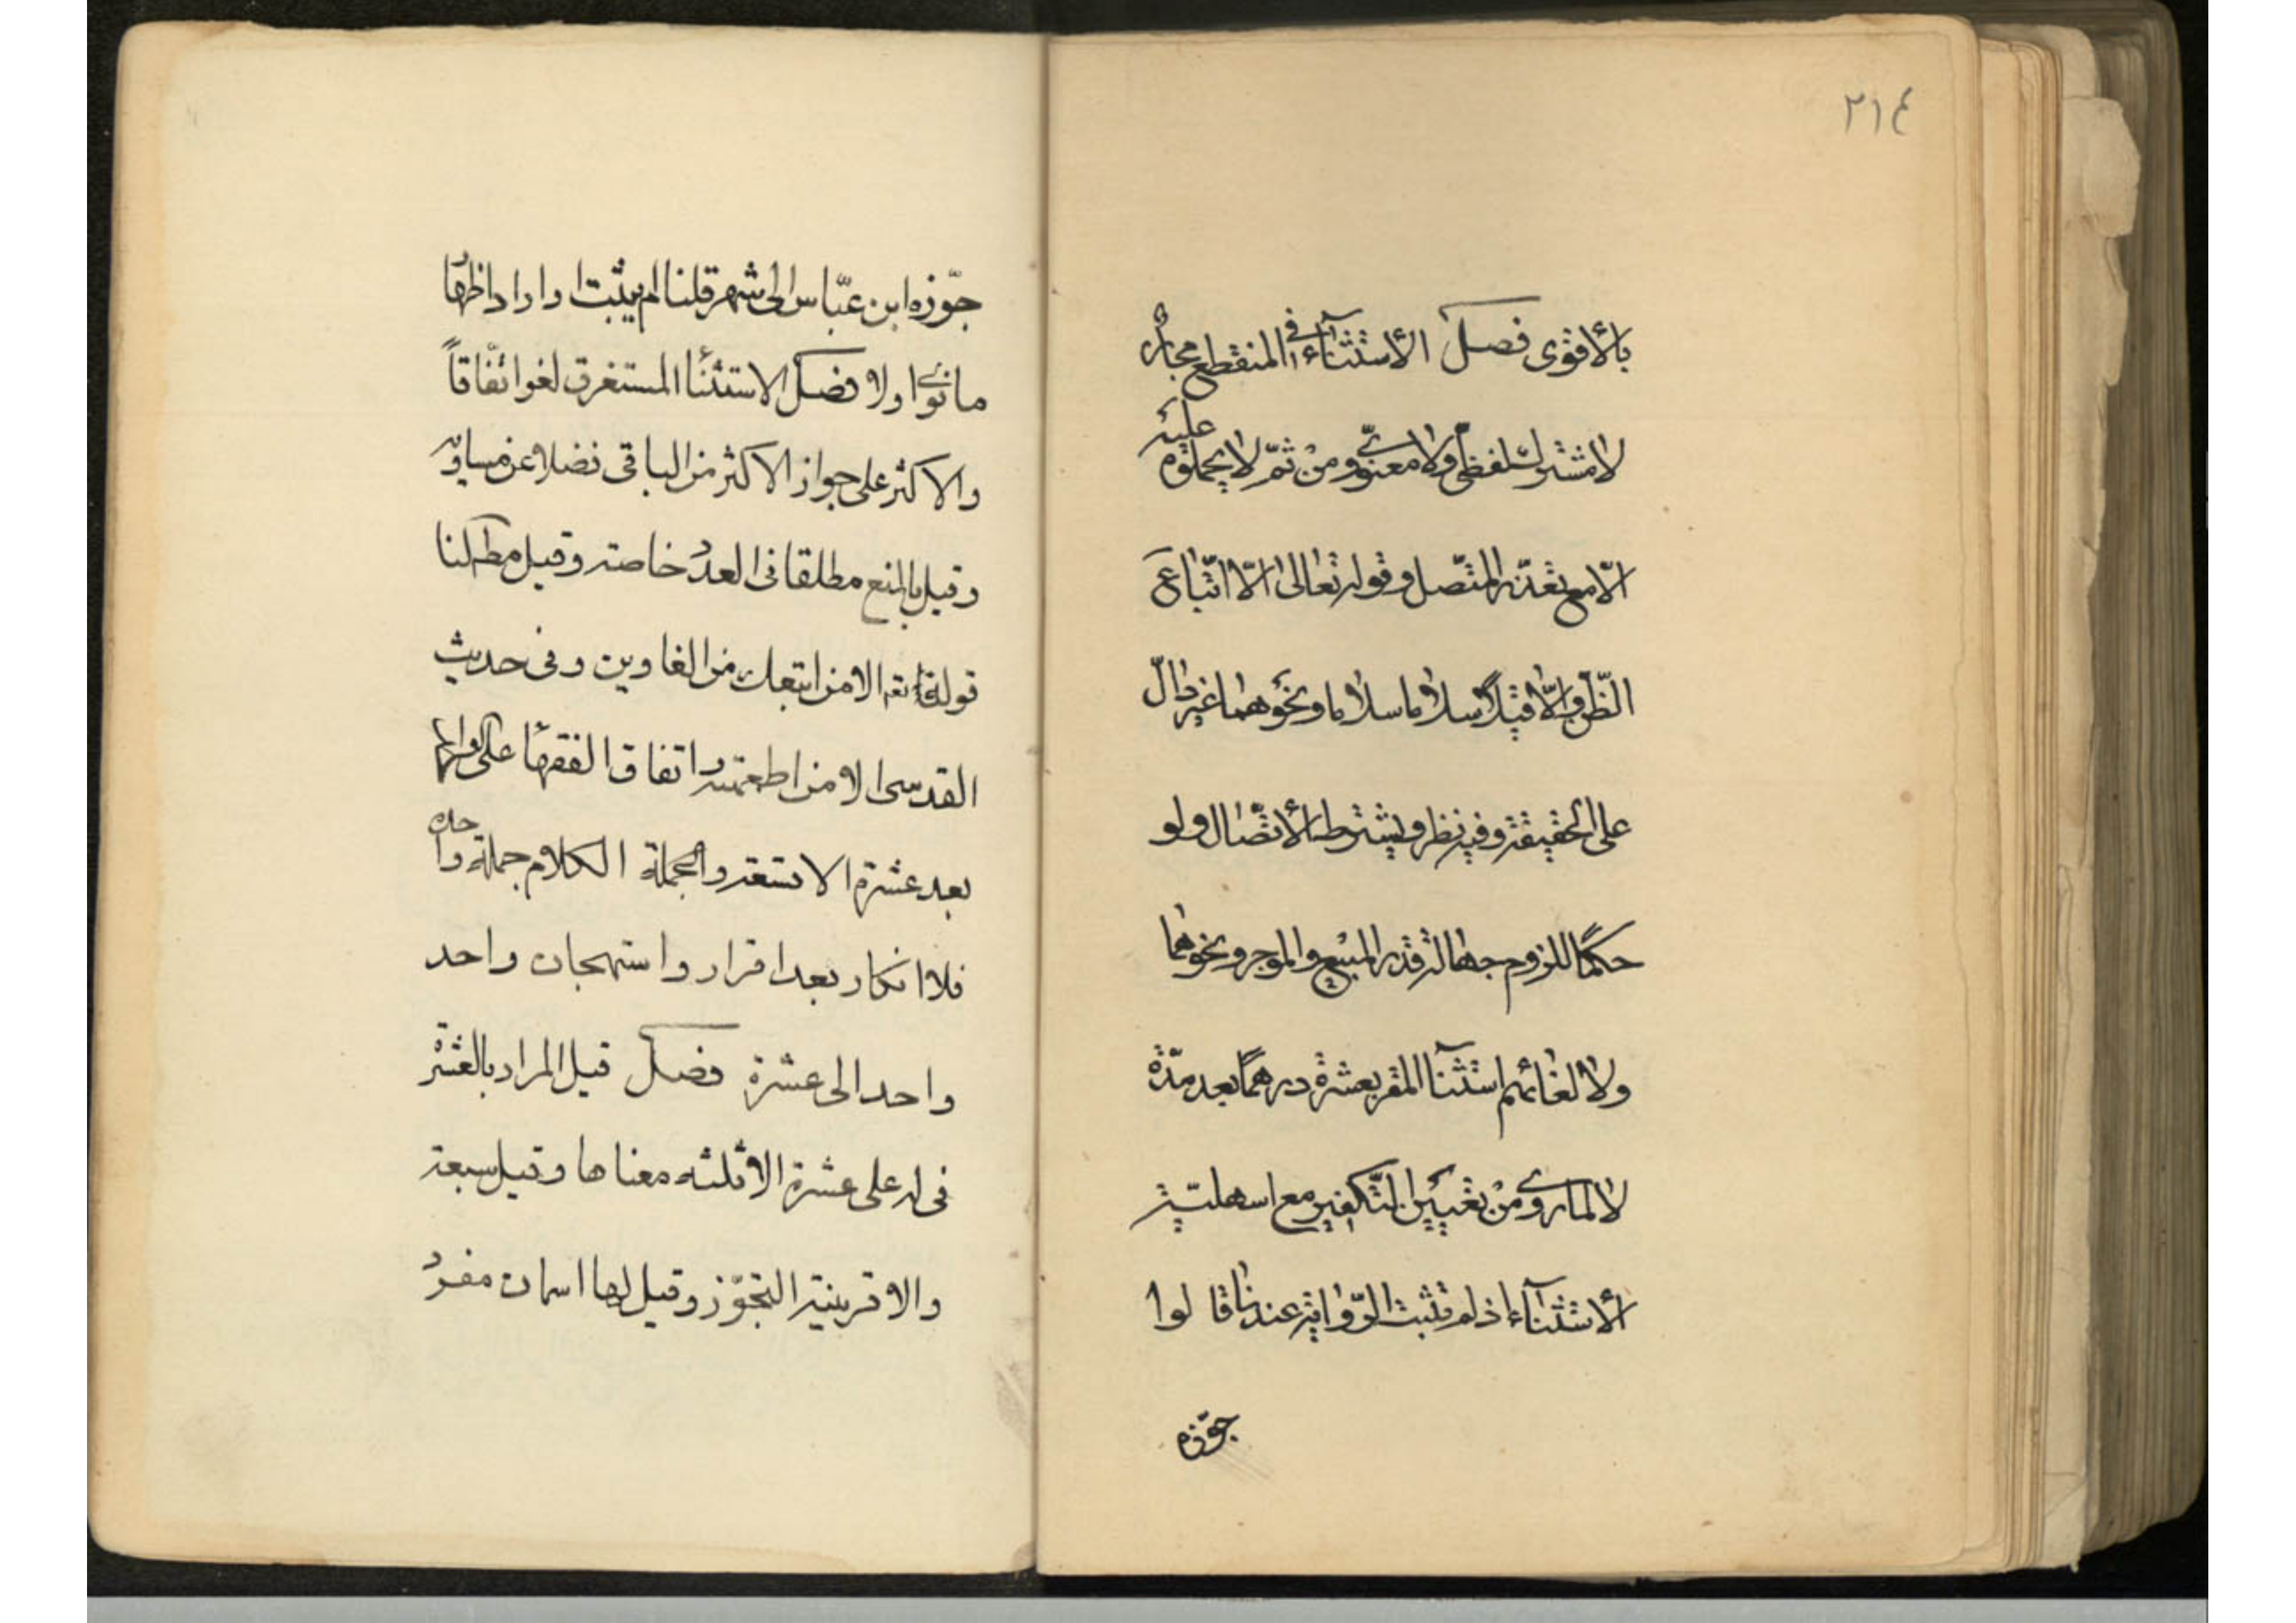 ٢١٤
بالأقوى فصل الأستثناء في المنقطع مجاز
لا مشترك لفظي ولا معنوي ومن ثم لا يحملوه عليه
الّا مع تعذّر المتّصل وقوله تعالى الّا اتّباع
الظّن والّا قيلًا سلاما سلاما ونحوهما غير دالّ
على الحقيقة وفيه نظر ويشترط الأتّصال ولو
حكمًا للزوم جهالة قدر المبيع والموجر ونحوهما
ولألغائهم استثنآ المقر بعشرة درهمًا بعد مدّة
لا لما روى من تعيين التّكفير مع اسهليّة
الأستثنآء اذ لم تثبت الرّواية عندنا قالوا
جوّزه
جوّزه ابن عبّاس الى شهر قلنا لم يثبت او اراد اظهار
ما نوى اولا فصل الاستثنا المستغرق لغو اتّفاقاً
والاكثر على جواز الاكثر من الباقى فضلا عن مساويه
وقيل بالمنع مطلقا فى العدد خاصة وقيل مط لنا
قوله تعا الا من اتبعك من الغاوين وفى حديث
القدسى الا من اطعمته واتفاق الفقهآ على
بعد عشرة الا تسعة والجملة الكلام جملة واحده
فلا انكار بعد اقرار واستهجان واحد
واحد الى عشرة فصل قيل المراد بالعشرة
فى له على عشرة الا ثلثه معناها وقيل سبعة
والا قرينة التجوّز وقيل لها اسمان مفرد